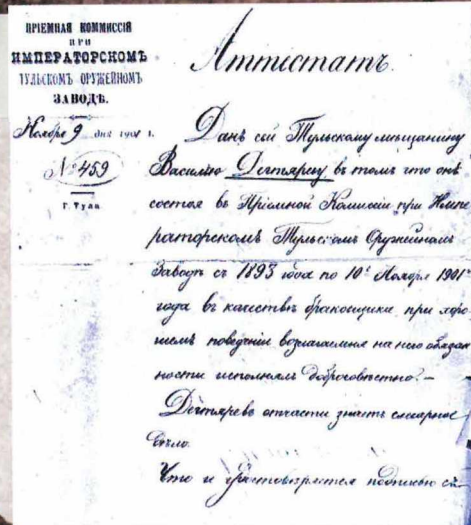 ПРІЕМНАЯ КОММИССІЯ
ПРИ
ИМПЕРАТОРСКОМЪ
ТУЛЬСКОМЪ ОРУЖЕЙНОМЪ
ЗАВОДѢ.
Ноября 9 дня 1901 г.
№ 459
Г. Тула.
Аттестатъ.
Данъ сей Тульскому мѣщанину
Василію Дегтяреву въ томъ что онъ
состоя въ Пріемной Комисіи при Импе
раторскомъ Тульскомъ Оружейномъ
Заводѣ съ 1893 года по 10е Ноября 1901
года въ качествѣ браковщика, при хоро
шемъ поведеніи возлагаемыя на него обязан
ности исполнялъ добросовѣстно. —
Дегтяревъ отчасти знаетъ слесарное
дѣло.
Что и удостовѣряется подписью съ